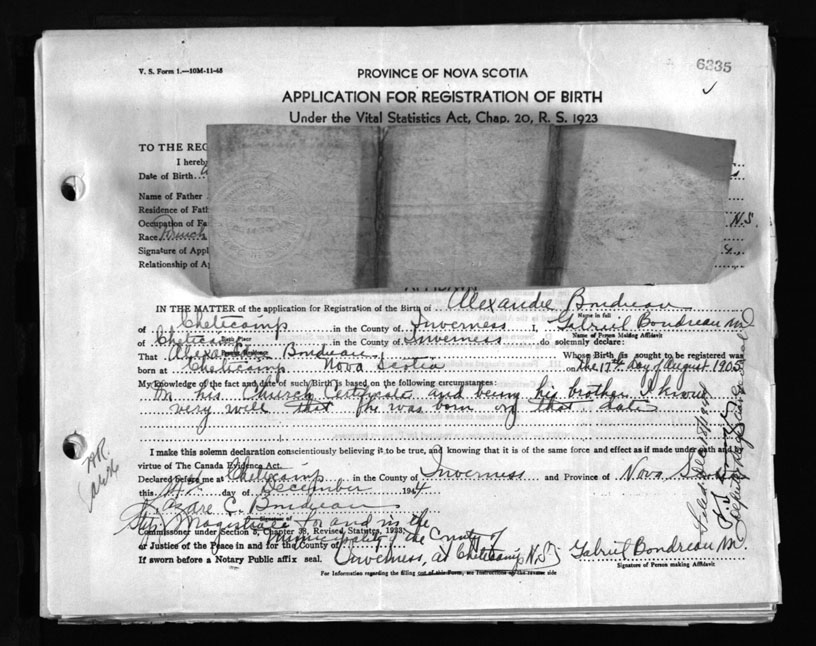 6235
V. S. Form 1.—10M-11-43
PROVINCE OF NOVA SCOTIA
APPLICATION FOR REGISTRATION OF BIRTH
Under the Vital Statistics Act, Chap. 20, R. S. 1923
TO THE REG
I hereb
Date of Birth
Name of Father
Residence of Fath
Occupation of Fa N.S.
Race French
Signature of Appl
Relationship of Ap
IN THE MATTER of the application for Registration of the Birth of Alexandre Boudreau
Name in full
of Cheticamp in the County of Inverness I, Gabriel Boudreau M
Name of Person Making Affidavit
of Cheticamp in the County of Inverness do solemnly declare:
That Alexandre Boudreau Whose Birth is sought to be registered was
born at Cheticamp Nova Scotia on the 17th day of August 1905
My knowledge of the fact and date of such Birth is based on the following circumstances:
On his Church Certificate and being his brother I know
very well that he was born on that date
I make this solemn declaration conscientiously believing it to be true, and knowing that it is of the same force and effect as if made under oath and
virtue of The Canada Evidence Act.
Declared before me at Cheticamp in the County of Inverness and Province of Nova
this day of December 1944
Lazare C. Boudreau
Magistrate for and in the
Commissioner under Section 5, Chapter 38, Revised Statutes, 1923,
Municipality of the County of
or Justice of the Peace in and for the County of
Inverness, at Cheticamp N.S.
If sworn before a Notary Public affix seal.
Gabriel Boudreau M.
Signature of Person making Affidavit
For Information regarding the filling out of this Form, see Instructions on the reverse side